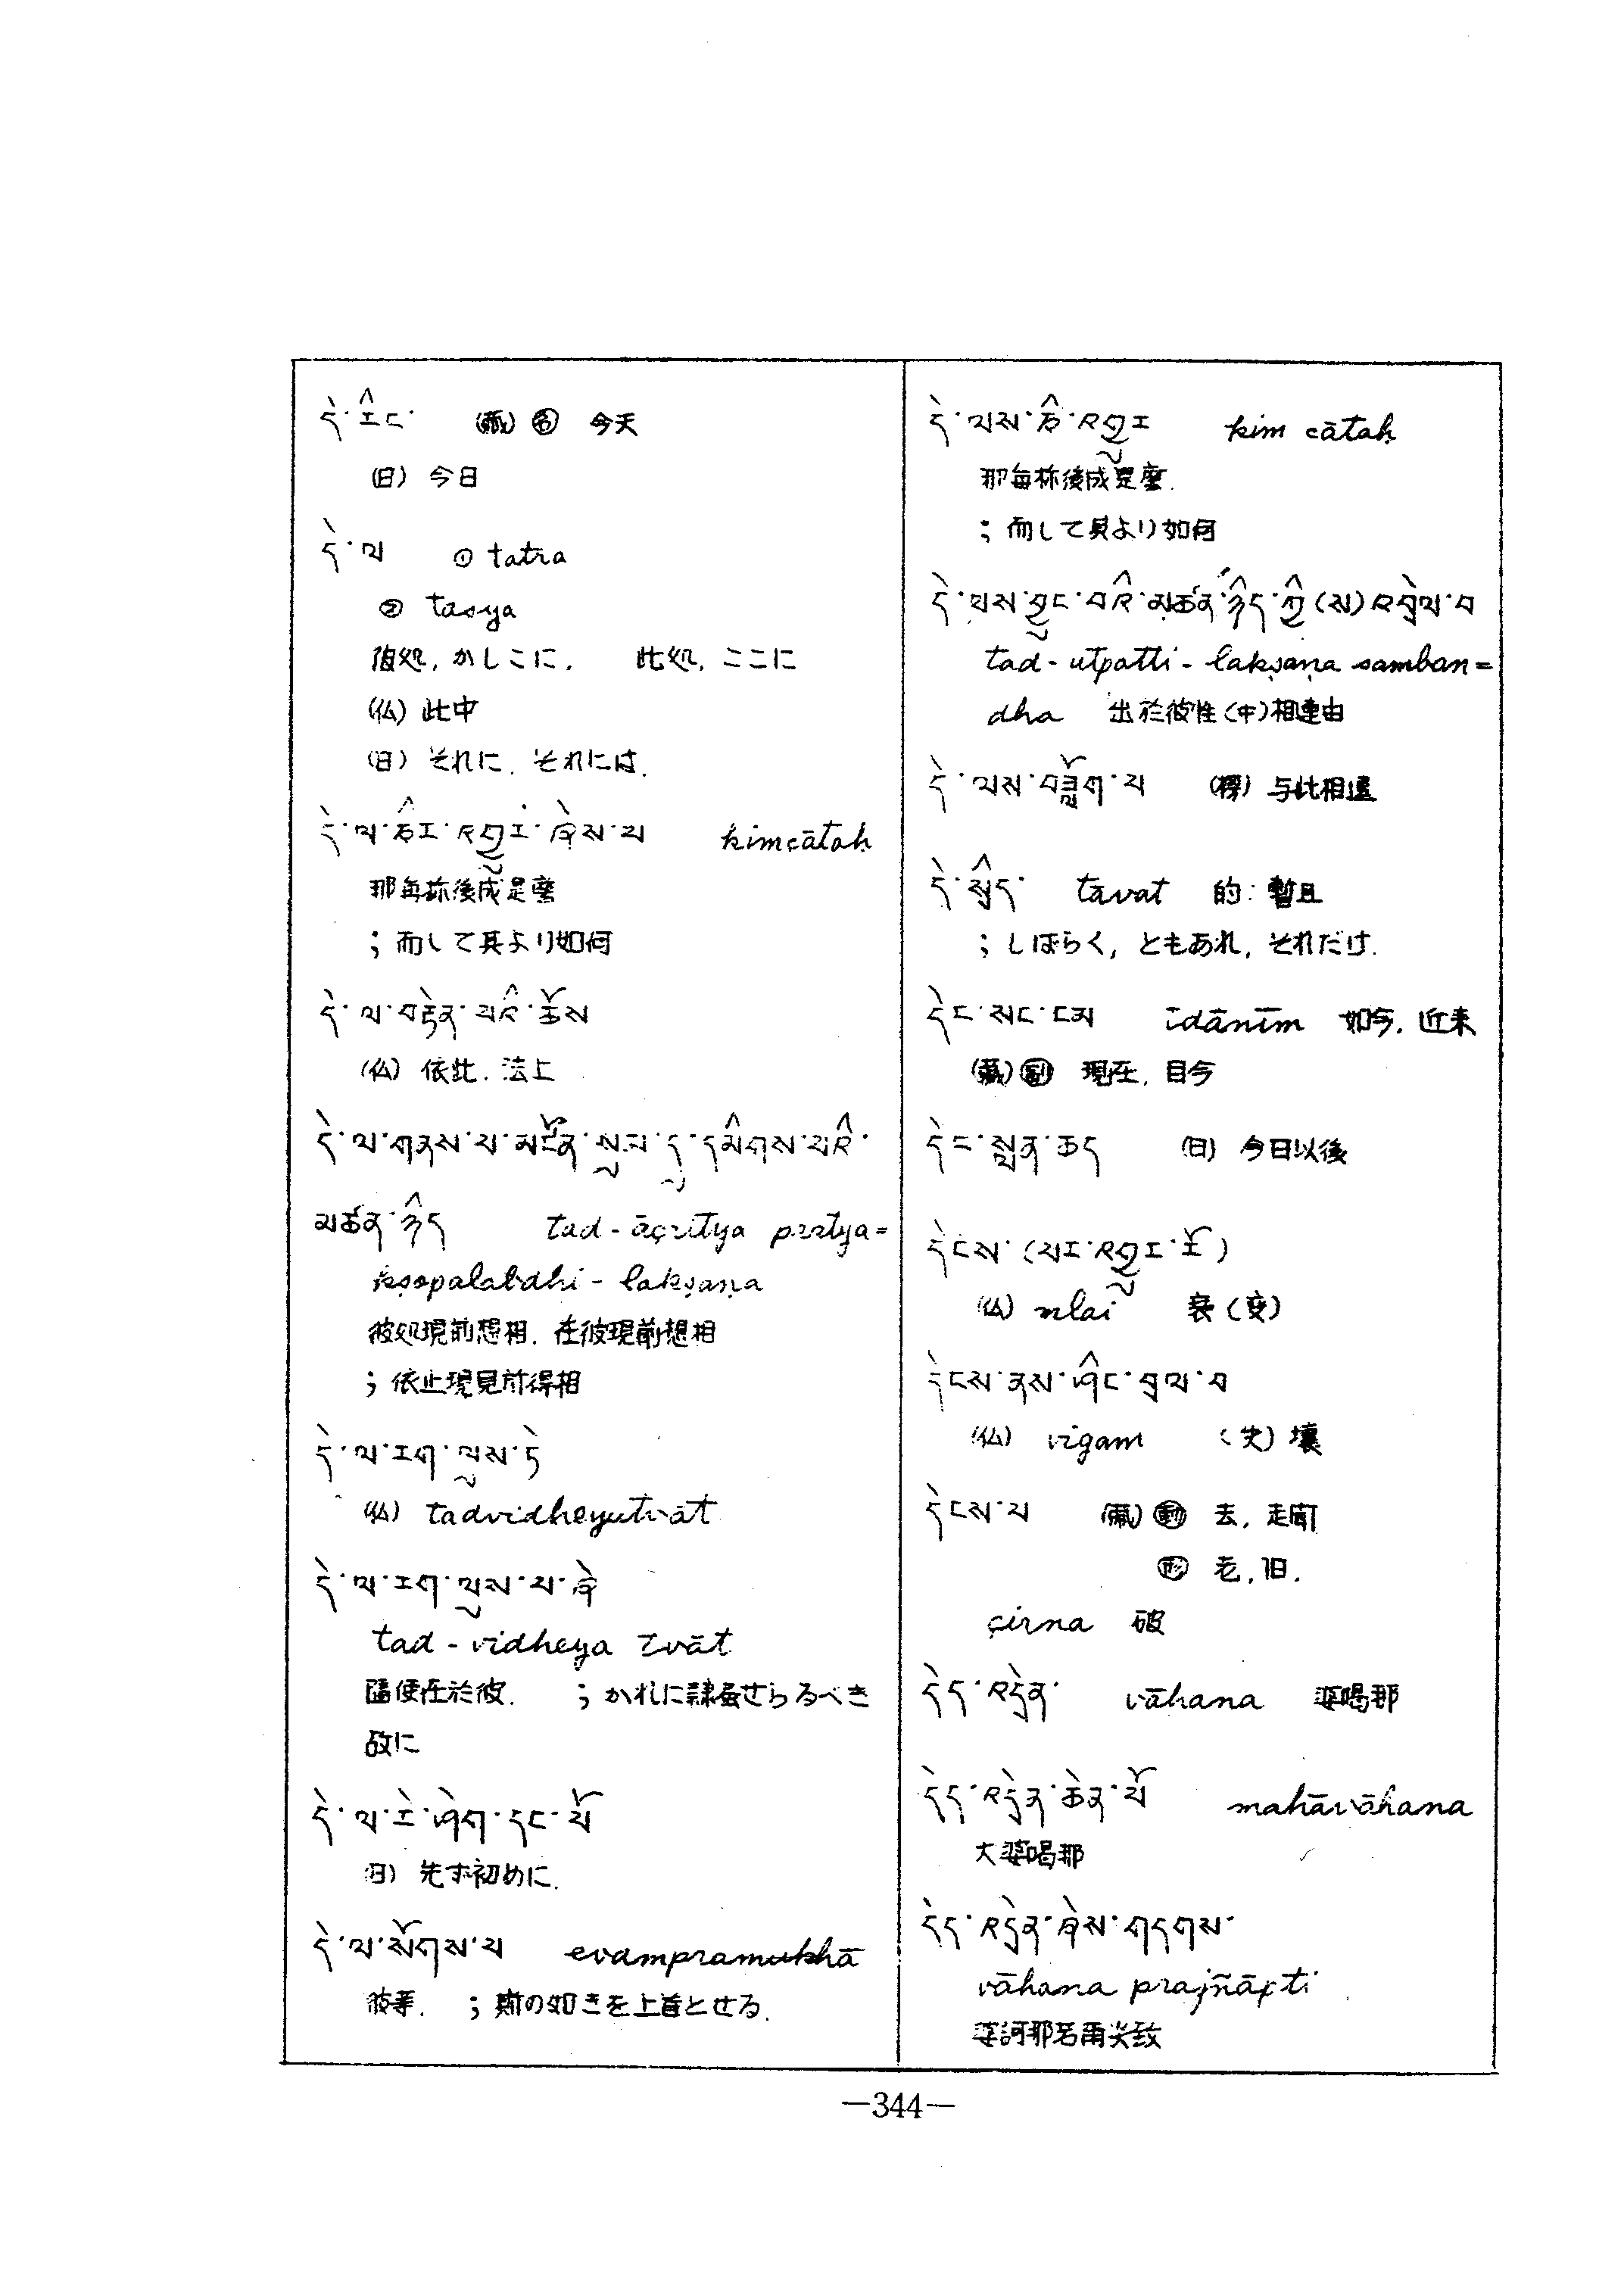 དེ་རིང་ (蔵) 名 今天
(日) 今日
དེ་ལ ① tatra
② tasya
彼処, かしこに. 此処, ここに
(仏) 此中
(日) それに. それには.
དེ་ལ་ཅིར་འགྱུར་ཞེས་པ kimcātaḥ
那每称後成是麼
; 而して其より如何
དེ་ལ་བརྟེན་པའི་ཆོས
(仏) 依此. 法上
དེ་ལ་གནས་པ་མངོན་སུམ་དུ་དམིགས་པའི་
མཚན་ཉིད tad-āçritya pratya=
kṣopalabdhi-lakṣaṇa
彼処現前想相. 在彼現前想相
; 依止現見前得相
དེ་ལ་རག་ལུས་ཏེ
(仏) tadvidheyutvāt
དེ་ལ་རག་ལུས་པ་ཞེ
tad-vidheya tvāt
随便在於彼. ; かれに隷せらるべき
故に
དེ་ལ་རེ་ཤེག་དང་པོ
(日) 先ず初めに.
དེ་ལ་སོགས་པ evampramukhā
彼等. ; 斯の如きを上首とせる.
དེ་ལས་ཅི་འགྱུར kim cātaḥ
那每称後成是麼.
; 而して其より如何
དེ་ལས་བྱུང་བའི་མཚན་ཉིད་ཀྱི(ས)འབྲེལ་བ
tad-utpatti-lakṣaṇa samban=
dha 出於彼性(中)相連由
དེ་ལས་བཟློག་པ 与此相違
དེ་སྲིད་ tāvat 的: 暫且
; しばらく, ともあれ, それだけ.
དེང་སང་ངམ idānīm 如今. 近来
(蔵) 副 現在. 目今
དེང་སླན་ཆད (日) 今日以後
དེངས་(པར་འགྱུར་རོ)
(仏) mlai 衰(変)
དེངས་ནས་ཤིང་བྲལ་བ
(仏) vigam (失) 壊
དེངས་པ (蔵) 動 去. 走開
形 老. 旧.
çirna 破
དེད་འདྲེན་ vāhana 婆喝那
དེད་འདྲེན་ཆེན་པོ mahāvāhana
大婆喝那
དེད་འདྲེན་ཞེས་གདགས་
vāhana prajñāpti
婆訶那若爾炎致
—344—